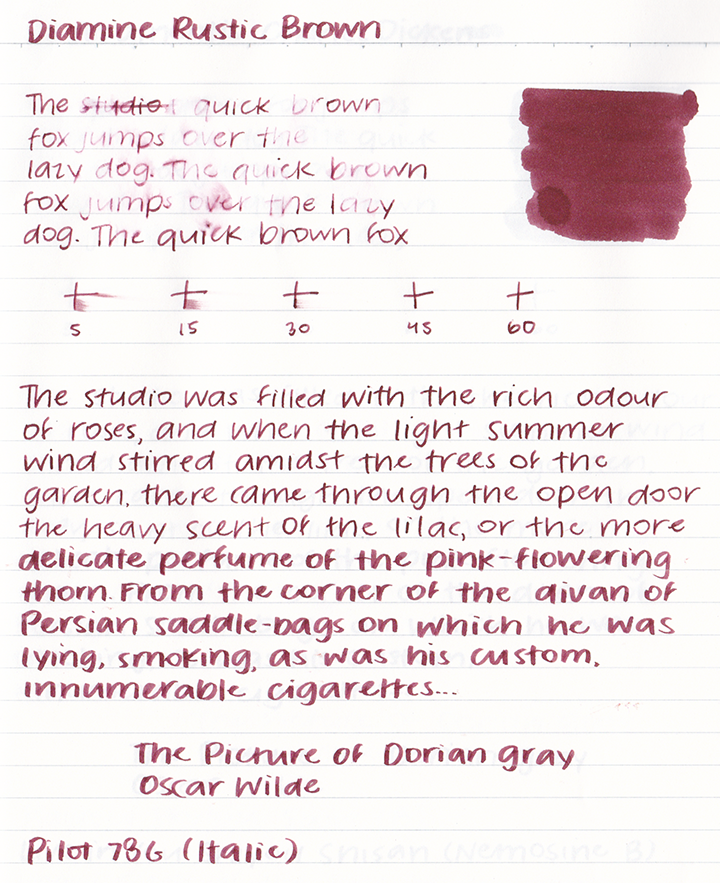 Diamine Rustic Brown
The studio quick brown
fox jumps over the
lazy dog. The quick brown
fox jumps over the lazy
dog. The quick brown fox
5 15 30 45 60
The studio was filled with the rich odour
of roses, and when the light summer
wind stirred amidst the trees of the
garden, there came through the open door
the heavy scent of the lilac, or the more
delicate perfume of the pink-flowering
thorn. From the corner of the divan of
Persian saddle-bags on which he was
lying, smoking, as was his custom,
innumerable cigarettes...
The Picture of Dorian gray
Oscar Wilde
Pilot 78G (Italic)